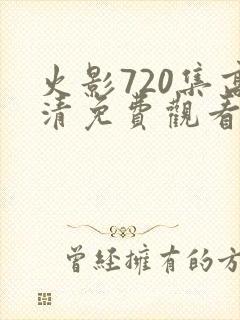 火影720集高
清免費觀看
曾經擁有的方